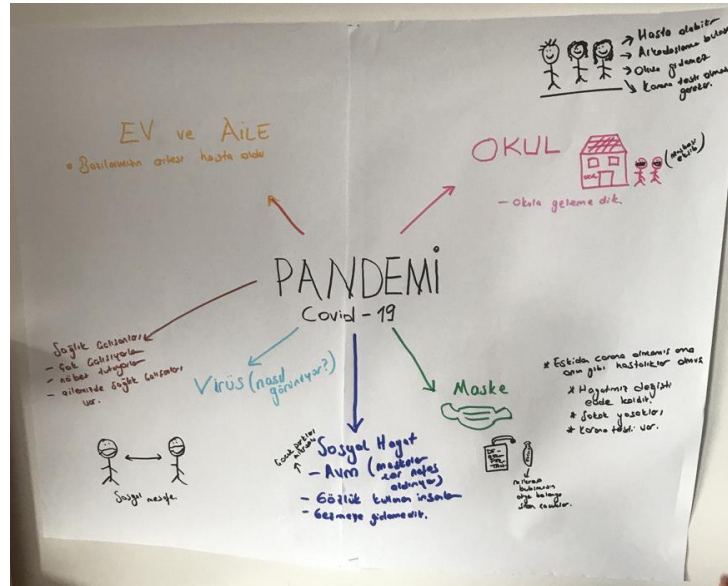 Hasta olabilir
Okula gidemez
Korona testi olması
gerekir.
EV ve AİLE
Bazılarımızın ailesi hasta oldu
OKUL
- Okula gelemedik.
PANDEMİ
Covid-19
Sağlık Çalışanları
- Çok Çalışıyorlar
- nöbet tutuyorlar
- ailemizde Sağlık Çalışanları
var.
Virüs (nasıl
görünüyor?)
Maske
* Eskiden corona olmamış ama
onun gibi hastalıklar olmuş
* Hayatımız değişti
evde kaldık.
* Sokak yasakları
* Korona testi var.
Sosyal mesafe
Sosyal Hayat
- Avm (maskeler
zor nefes
aldırıyor)
- Gözlük kullanan insanlar
- Gezmeye gidemedik.